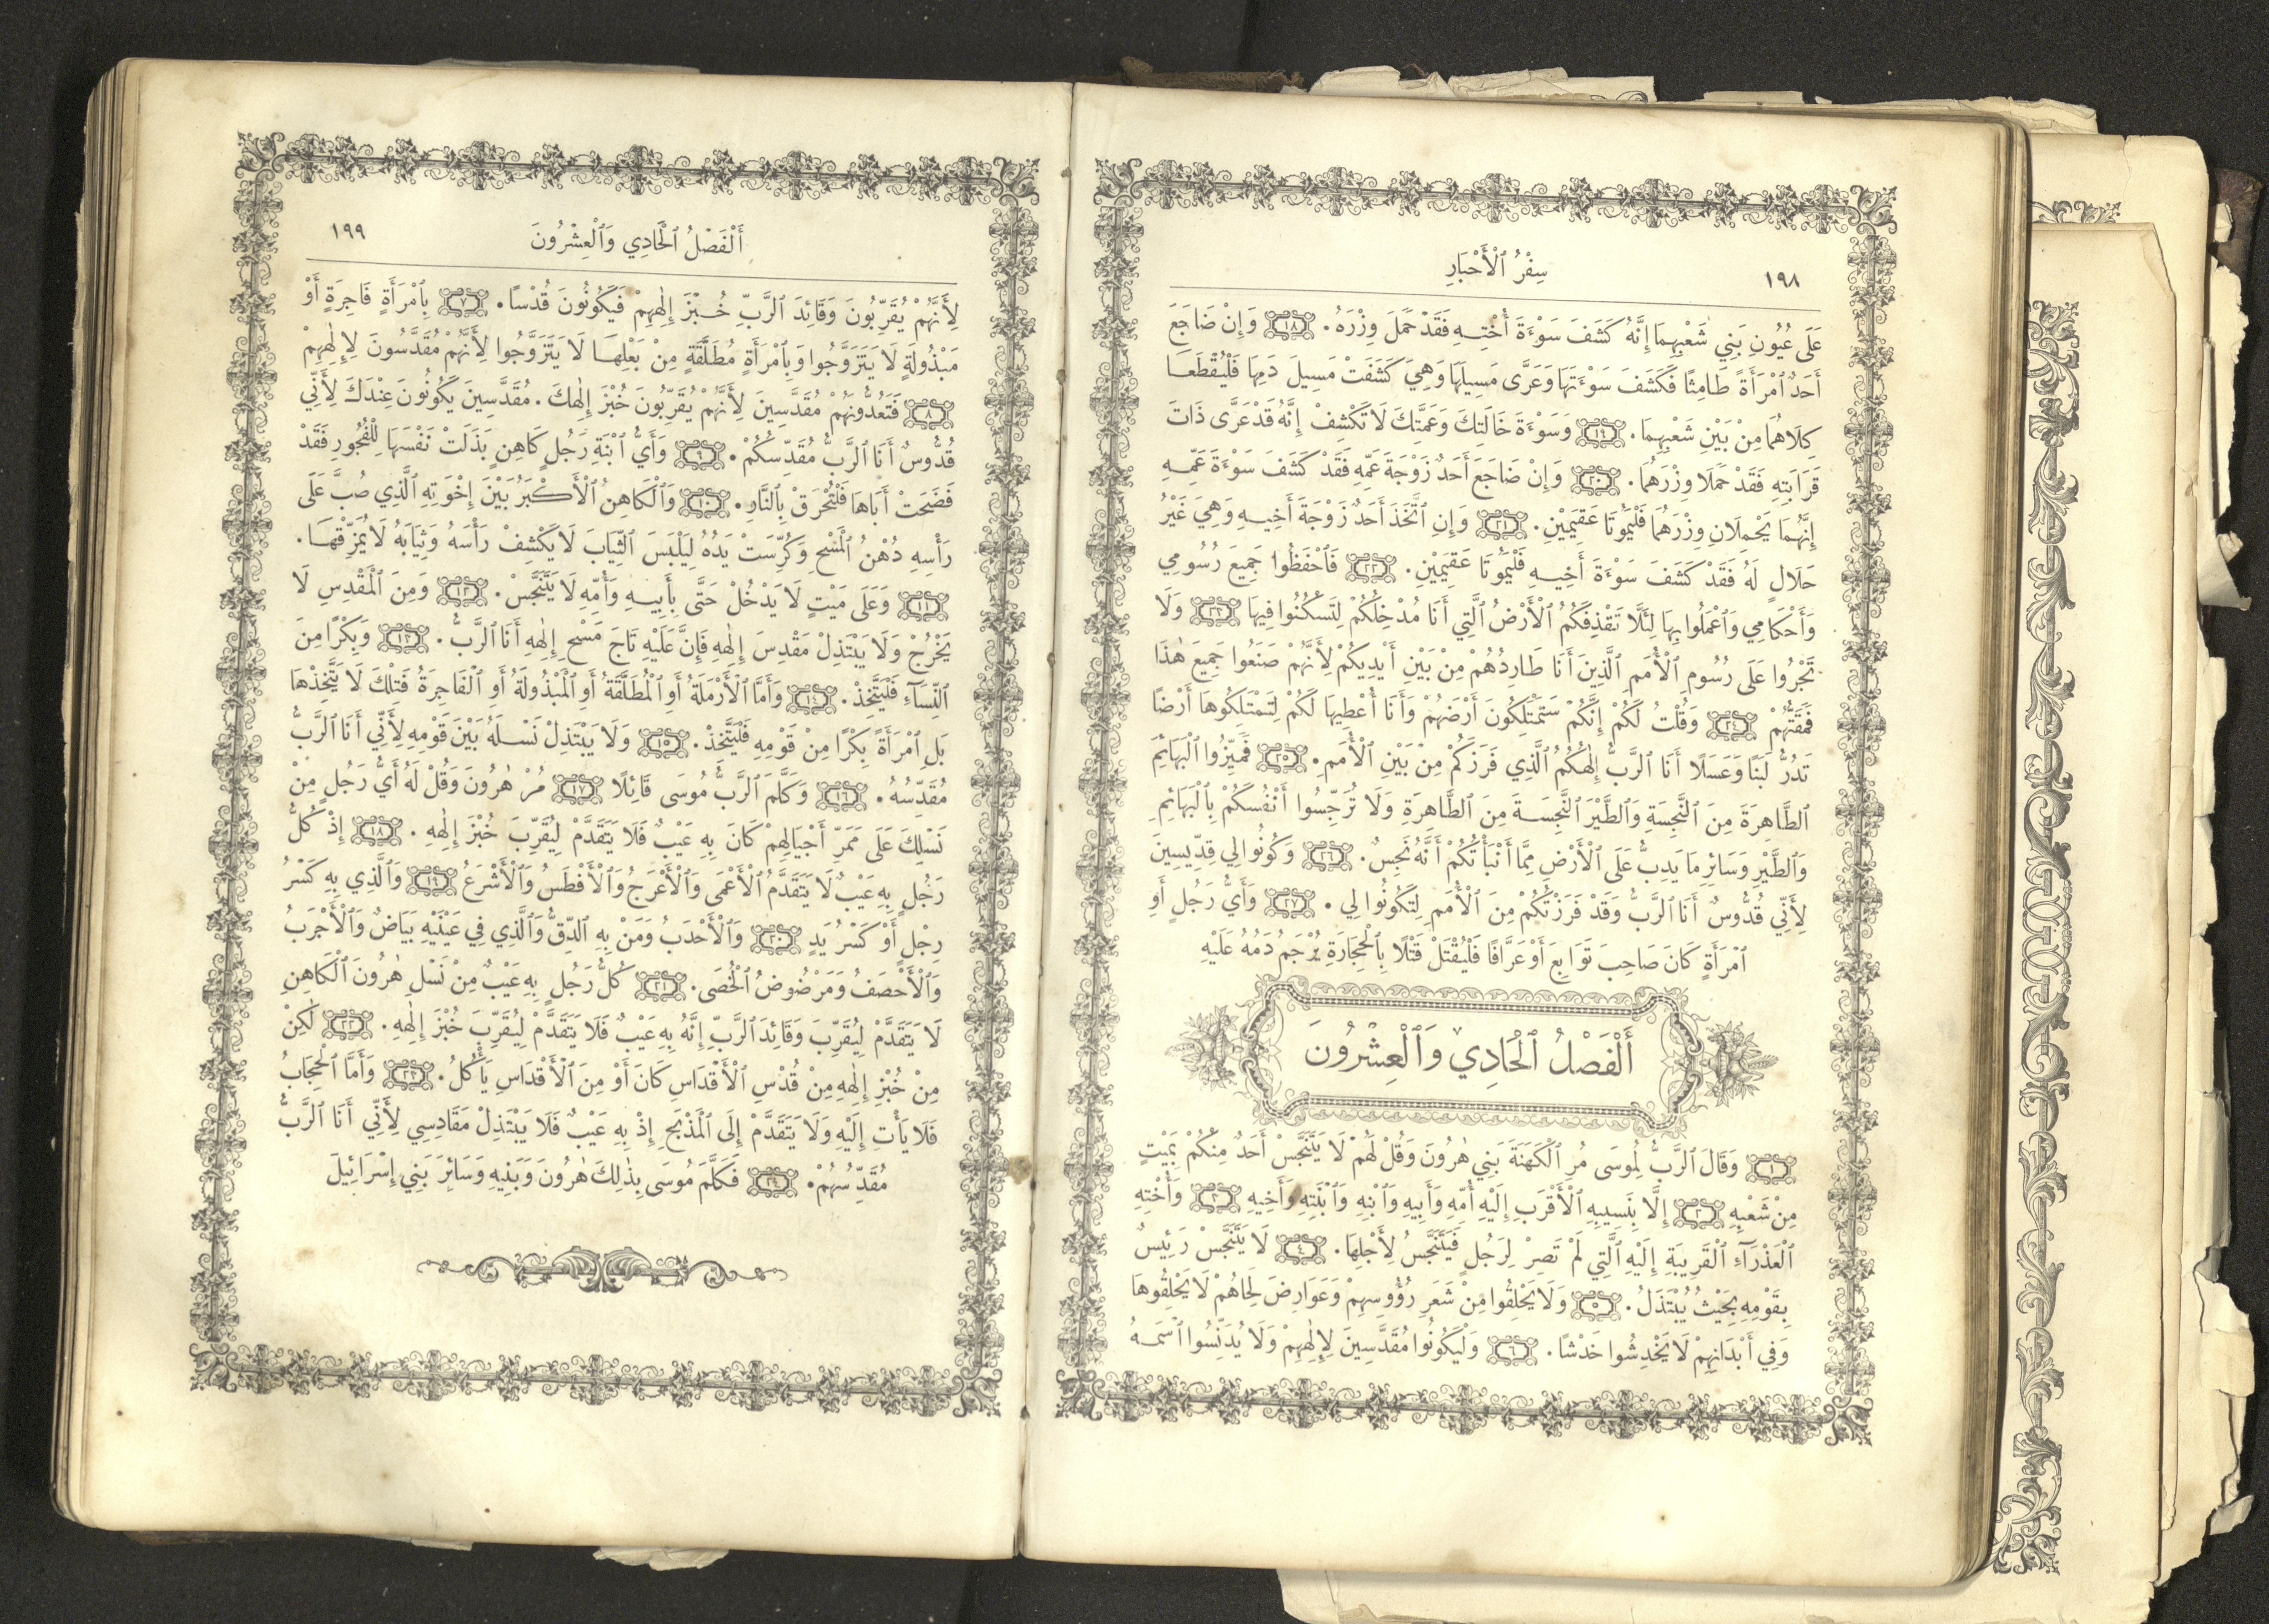 ١٩٨
سِفْرُ ٱلْأَحْبَارِ
عَلَى عُيُونِ بَنِي شَعْبِهِمَا إِنَّهُ كَشَفَ سَوْءَةَ أُخْتِهِ فَقَدْ حَمَلَ وِزْرَهُ. ١٨ وَإِنْ ضَاجَعَ
أَحَدٌ ٱمْرَأَةً طَامِثًا فَكَشَفَ سَوْءَتَهَا وَعَرَّى مَسِيلَهَا وَهِيَ كَشَفَتْ مَسِيلَ دَمِهَا فَلْيُقْطَعَا
كِلَاهُمَا مِنْ بَيْنِ شَعْبِهِمَا. ١٩ وَسَوْءَةَ خَالَتِكَ وَعَمَّتِكَ لَا تَكْشِفْ إِنَّهُ قَدْ عَرَّى ذَاتَ
قَرَابَتِهِ فَقَدْ حَمَلَا وِزْرَهُمَا. ٢٠ وَإِنْ ضَاجَعَ أَحَدٌ زَوْجَةَ عَمِّهِ فَقَدْ كَشَفَ سَوْءَةَ عَمِّهِ
إِنَّهُمَا يَحْمِلَانِ وِزْرَهُمَا فَلْيَمُوتَا عَقِيمَيْنِ. ٢١ وَإِنِ ٱتَّخَذَ أَحَدٌ زَوْجَةَ أَخِيهِ وَهِيَ غَيْرُ
حَلَالٍ لَهُ فَقَدْ كَشَفَ سَوْءَةَ أَخِيهِ فَلْيَمُوتَا عَقِيمَيْنِ. ٢٢ فَٱحْفَظُوا جَمِيعَ رُسُومِي
وَأَحْكَامِي وَٱعْمَلُوا بِهَا لِئَلَّا تَقْذِفَكُمُ ٱلْأَرْضُ ٱلَّتِي أَنَا مُدْخِلُكُمْ لِتَسْكُنُوا فِيهَا ٢٣ وَلَا
تَجْرُوا عَلَى رُسُومِ ٱلْأُمَمِ ٱلَّذِينَ أَنَا طَارِدُهُمْ مِنْ بَيْنِ أَيْدِيكُمْ لِأَنَّهُمْ صَنَعُوا جَمِيعَ هٰذَا
فَمَقَتُّهُمْ ٢٤ وَقُلْتُ لَكُمْ إِنَّكُمْ سَتَمْتَلِكُونَ أَرْضَهُمْ وَأَنَا أُعْطِيهَا لَكُمْ لِتَمْتَلِكُوهَا أَرْضًا
تَدُرُّ لَبَنًا وَعَسَلًا أَنَا ٱلرَّبُّ إِلٰهُكُمُ ٱلَّذِي فَرَزَكُمْ مِنْ بَيْنِ ٱلْأُمَمِ. ٢٥ فَمَيِّزُوا ٱلْبَهَائِمَ
ٱلطَّاهِرَةَ مِنَ ٱلنَّجِسَةِ وَٱلطَّيْرَ ٱلنَّجِسَةَ مِنَ ٱلطَّاهِرَةِ وَلَا تُرَجِّسُوا أَنْفُسَكُمْ بِٱلْبَهَائِمِ
وَٱلطَّيْرِ وَسَائِرِ مَا يَدِبُّ عَلَى ٱلْأَرْضِ مِمَّا أَنْبَأْتُكُمْ أَنَّهُ نَجِسٌ. ٢٦ وَكُونُوا لِي قِدِّيسِينَ
لِأَنِّي قُدُّوسٌ أَنَا ٱلرَّبُّ وَقَدْ فَرَزْتُكُمْ مِنَ ٱلْأُمَمِ لِتَكُونُوا لِي. ٢٧ وَأَيُّ رَجُلٍ أَوِ
ٱمْرَأَةٍ كَانَ صَاحِبَ تَوَابِعَ أَوْ عَرَّافًا فَلْيُقْتَلْ قَتْلًا بِٱلْحِجَارَةِ يُرْجَمُ دَمُهُ عَلَيْهِ
أَلْفَصْلُ ٱلْحَادِي وَٱلْعِشْرُونَ
١ وَقَالَ ٱلرَّبُّ لِمُوسَى مُرِ ٱلْكَهَنَةَ بَنِي هٰرُونَ وَقُلْ لَهُمْ لَا يَتَنَجَّسْ أَحَدٌ مِنْكُمْ بِمَيْتٍ
مِنْ شَعْبِهِ ٢ إِلَّا بِنَسِيبِهِ ٱلْأَقْرَبِ إِلَيْهِ أُمِّهِ وَأَبِيهِ وَٱبْنِهِ وَٱبْنَتِهِ وَأَخِيهِ ٣ وَأُخْتِهِ
ٱلْعَذْرَآءِ ٱلْقَرِيبَةِ إِلَيْهِ ٱلَّتِي لَمْ تَصِرْ لِرَجُلٍ فَيَتَنَجَّسُ لِأَجْلِهَا. ٤ لَا يَتَنَجَّسْ رَئِيسٌ
بِقَوْمِهِ بِحَيْثُ يُبْتَذَلُ. ٥ وَلَا يَحْلِقُوا مِنْ شَعَرِ رُؤُوسِهِمْ وَعَوَارِضَ لِحَاهُمْ لَا يَحْلِقُوهَا
وَفِي أَبْدَانِهِمْ لَا يَخْدِشُوا خَدْشًا. ٦ وَلْيَكُونُوا مُقَدَّسِينَ لِإِلٰهِهِمْ وَلَا يُدَنِّسُوا ٱسْمَهُ
أَلْفَصْلُ ٱلْحَادِي وَٱلْعِشْرُونَ
١٩٩
لِأَنَّهُمْ يُقَرِّبُونَ وَقَائِدَ ٱلرَّبِّ خُبْزَ إِلٰهِهِمْ فَيَكُونُونَ قُدْسًا. ٧ بِٱمْرَأَةٍ فَاجِرَةٍ أَوْ
مَبْذُولَةٍ لَا يَتَزَوَّجُوا وَبِٱمْرَأَةٍ مُطَلَّقَةٍ مِنْ بَعْلِهَا لَا يَتَزَوَّجُوا لِأَنَّهُمْ مُقَدَّسُونَ لِإِلٰهِهِمْ
٨ فَتَعُدُّونَهُمْ مُقَدَّسِينَ لِأَنَّهُمْ يُقَرِّبُونَ خُبْزَ إِلٰهِكَ. مُقَدَّسِينَ يَكُونُونَ عِنْدَكَ لِأَنِّي
قُدُّوسٌ أَنَا ٱلرَّبُّ مُقَدِّسُكُمْ. ٩ وَأَيُّ ٱبْنَةِ رَجُلٍ كَاهِنٍ بَذَلَتْ نَفْسَهَا لِلْفُجُورِ فَقَدْ
فَضَحَتْ أَبَاهَا فَلْتُحْرَقْ بِٱلنَّارِ. ١٠ وَٱلْكَاهِنُ ٱلْأَكْبَرُ بَيْنَ إِخْوَتِهِ ٱلَّذِي صُبَّ عَلَى
رَأْسِهِ دُهْنُ ٱلْمَسْحِ وَكُرِّسَتْ يَدُهُ لِيَلْبَسَ ٱلثِّيَابَ لَا يَكْشِفْ رَأْسَهُ وَثِيَابَهُ لَا يُمَزِّقْهَا.
١١ وَعَلَى مَيْتٍ لَا يَدْخُلْ حَتَّى بِأَبِيهِ وَأُمِّهِ لَا يَتَنَجَّسْ. ١٢ وَمِنَ ٱلْمَقْدِسِ لَا
يَخْرُجْ وَلَا يَبْتَذِلْ مَقْدِسَ إِلٰهِهِ فَإِنَّ عَلَيْهِ تَاجَ مَسْحِ إِلٰهِهِ أَنَا ٱلرَّبُّ. ١٣ وَبِكْرًا مِنَ
ٱلنِّسَآءِ فَلْيَتَّخِذْ. ١٤ وَأَمَّا ٱلْأَرْمَلَةُ أَوِ ٱلْمُطَلَّقَةُ أَوِ ٱلْمَبْذُولَةُ أَوِ ٱلْفَاجِرَةُ فَتِلْكَ لَا يَتَّخِذْهَا
بَلِ ٱمْرَأَةً بِكْرًا مِنْ قَوْمِهِ فَلْيَتَّخِذْ. ١٥ وَلَا يَبْتَذِلْ نَسْلَهُ بَيْنَ قَوْمِهِ لِأَنِّي أَنَا ٱلرَّبُّ
مُقَدِّسُهُ. ١٦ وَكَلَّمَ ٱلرَّبُّ مُوسَى قَائِلًا ١٧ مُرْ هٰرُونَ وَقُلْ لَهُ أَيُّ رَجُلٍ مِنْ
نَسْلِكَ عَلَى مَمَرِّ أَجْيَالِهِمْ كَانَ بِهِ عَيْبٌ فَلَا يَتَقَدَّمْ لِيُقَرِّبَ خُبْزَ إِلٰهِهِ. ١٨ إِذْ كُلُّ
رَجُلٍ بِهِ عَيْبٌ لَا يَتَقَدَّمُ ٱلْأَعْمَى وَٱلْأَعْرَجُ وَٱلْأَفْطَسُ وَٱلْأَشْرَعُ ١٩ وَٱلَّذِي بِهِ كَسْرُ
رِجْلٍ أَوْ كَسْرُ يَدٍ ٢٠ وَٱلْأَحْدَبُ وَمَنْ بِهِ ٱلدِّقُّ وَٱلَّذِي فِي عَيْنَيْهِ بَيَاضٌ وَٱلْأَجْرَبُ
وَٱلْأَحْصَفُ وَمَرْضُوضُ ٱلْخُصَى. ٢١ كُلُّ رَجُلٍ بِهِ عَيْبٌ مِنْ نَسْلِ هٰرُونَ ٱلْكَاهِنِ
لَا يَتَقَدَّمْ لِيُقَرِّبَ وَقَائِدَ ٱلرَّبِّ إِنَّهُ بِهِ عَيْبٌ فَلَا يَتَقَدَّمْ لِيُقَرِّبَ خُبْزَ إِلٰهِهِ. ٢٢ لٰكِنْ
مِنْ خُبْزِ إِلٰهِهِ مِنْ قُدْسِ ٱلْأَقْدَاسِ كَانَ أَوْ مِنَ ٱلْأَقْدَاسِ يَأْكُلُ. ٢٣ وَأَمَّا ٱلْحِجَابُ
فَلَا يَأْتِ إِلَيْهِ وَلَا يَتَقَدَّمْ إِلَى ٱلْمَذْبَحِ إِذْ بِهِ عَيْبٌ فَلَا يَبْتَذِلْ مَقَادِسِي لِأَنِّي أَنَا ٱلرَّبُّ
مُقَدِّسُهُمْ. ٢٤ فَكَلَّمَ مُوسَى بِذٰلِكَ هٰرُونَ وَبَنِيهِ وَسَائِرَ بَنِي إِسْرَائِيلَ